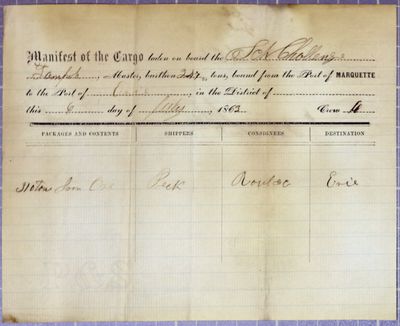 Manifest of the Cargo taken on board the Sch Challenge
, Master, burthen tons, bound from the Port of MARQUETTE
to the Port of Erie, in the District of
this 6 day of , 1863 Crew
PACKAGES AND CONTENTS SHIPPERS CONSIGNEES DESTINATION
310 tons Iron Ore Peck Erie